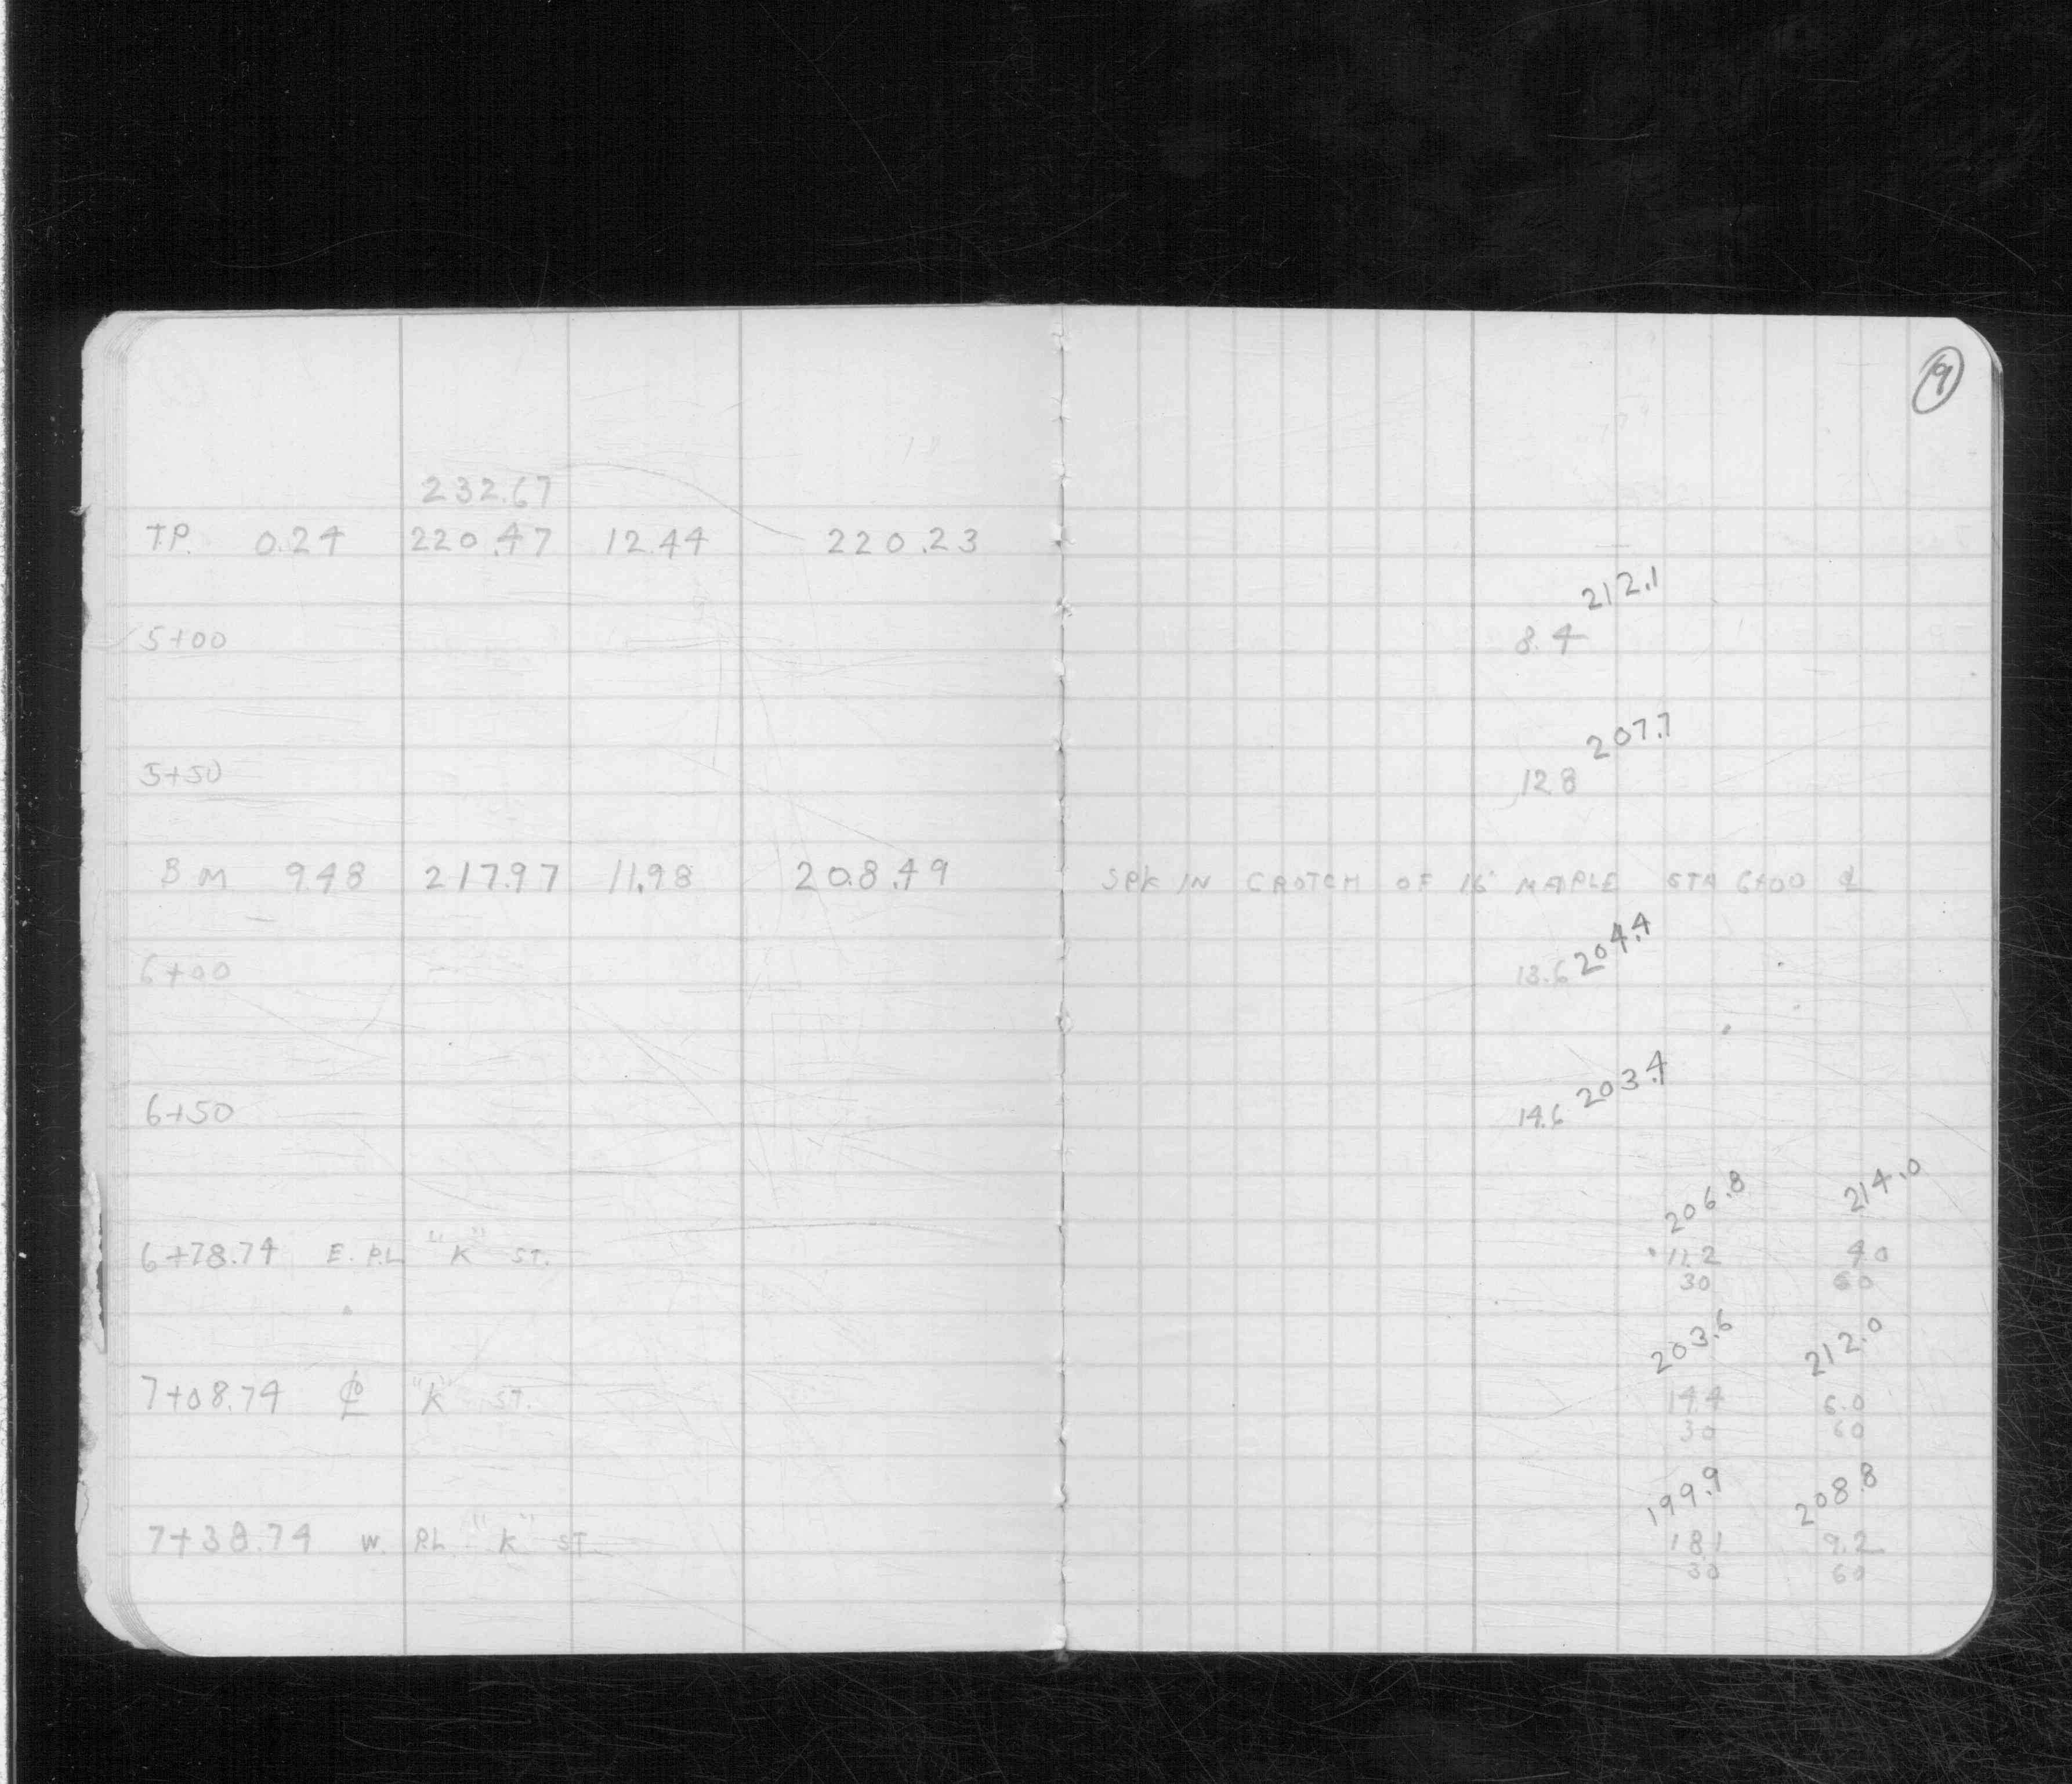 9
232.67
T.P. 0.24 220.47 12.44 220.23
212.1
5+00 8.4
207.7
5+50 12.8
B M 9.48 217.97 11.98 208.49 SPK IN CROTCH OF 16" MAPLE STA 6+00 ℄
204.4
6+00 13.6
203.4
6+50 14.6
206.8 214.0
6+78.74 E. P.L "K" ST. 11.2 4.0
30 60
203.6 212.0
7+08.74 ℄ "K" ST. 14.4 6.0
30 60
199.9 208.8
7+38.74 W. P.L. "K" ST 18.1 9.2
30 60